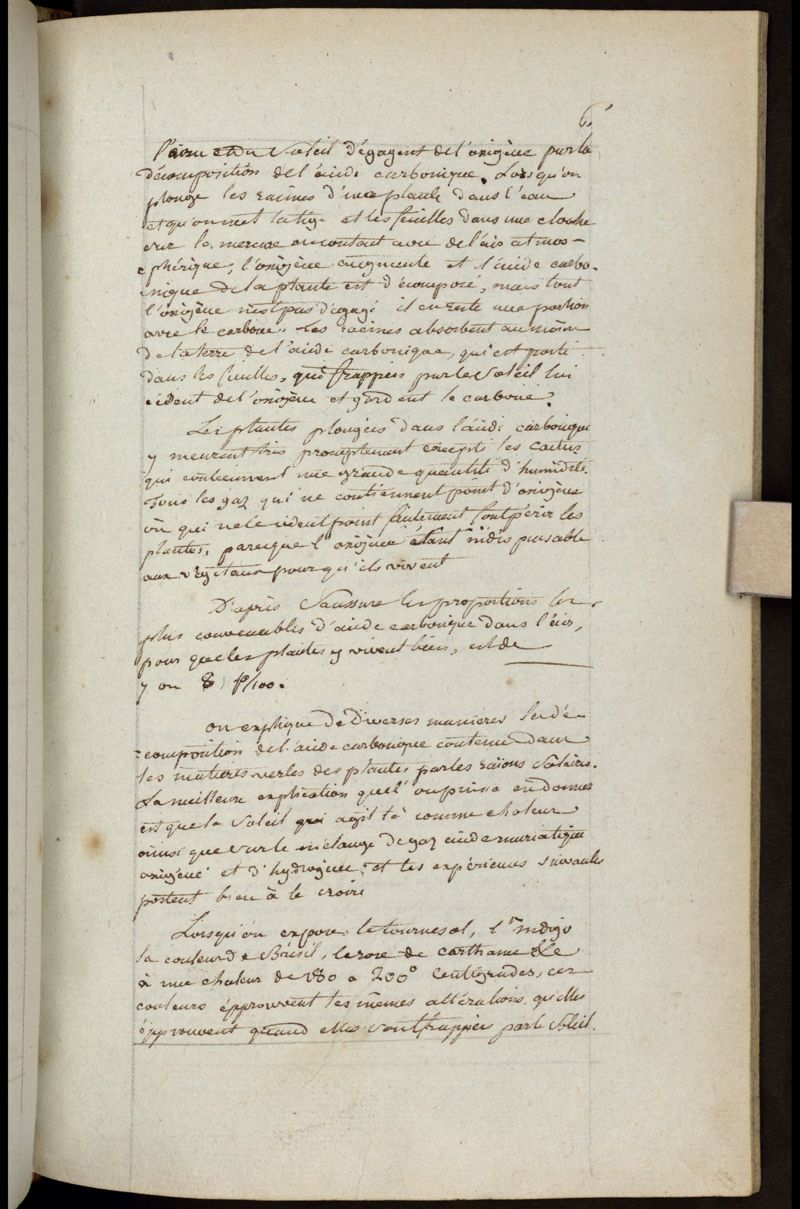 6
l'eau et du soleil dégagent de l'oxigène par la
décomposition de l'acide carbonique. Lorsqu'on
plonge les racines d'une plante dans l'eau
et qu'on met la tige et les feuilles dans une cloche
sur le mercure en contact avec de l'air atmos-
-phérique, l'oxigène augmente et l'acide carbo-
nique de la plante est décomposé, mais tout
l'oxigène n'est pas dégagé il en reste une portion
avec le carbone. Les racines absorbent au moien
de la terre de l'acide carbonique, qui est porté
dans les feuilles, qui frappées par le soleil lui
cédent de l'oxigène et gardent le carbone.
Les plantes plongées dans l'acide carbonique
y meurent très promptement excepté les cactus
qui contiennent une grande quantité d'humidité.
Tous les gaz qui ne contiennent point d'oxigène
ou qui ne le cédent point facilement font périr les
plantes, parceque l'oxigène étant indispensable
aux végétaux pour qu'ils vivent
D'après Saussure les proportions les
plus convenables d'acide carbonique dans l'air,
pour que les plantes y vivent bien, est de
7 ou 8 p/100.
on explique de diverses manieres la dé-
-composition de l'acide carbonique contenu dans
les matieres vertes des plantes par les raions solaires.
La meilleure explication quel'on puisse en donner
est que le soleil qui agit là comme chaleur
ainsi que sur le mélange de gaz acide muriatique
oxigené et d'hydrogène, et les expériences suivantes
portent bien à le croire
Lorsqu'on expose le tournesol, l'indigo
la couleur de Brésil, le rose de carthame &c
à une chaleur de 180 a 200° centigrades, ces
couleurs éprouvent les mêmes altérations qu'elles
éprouvent quand elles sont frappées par le soleil.